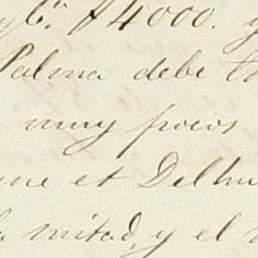 y 6.º $4000. y
Palma debe
muy pocos
et Delhu
mitad, y el